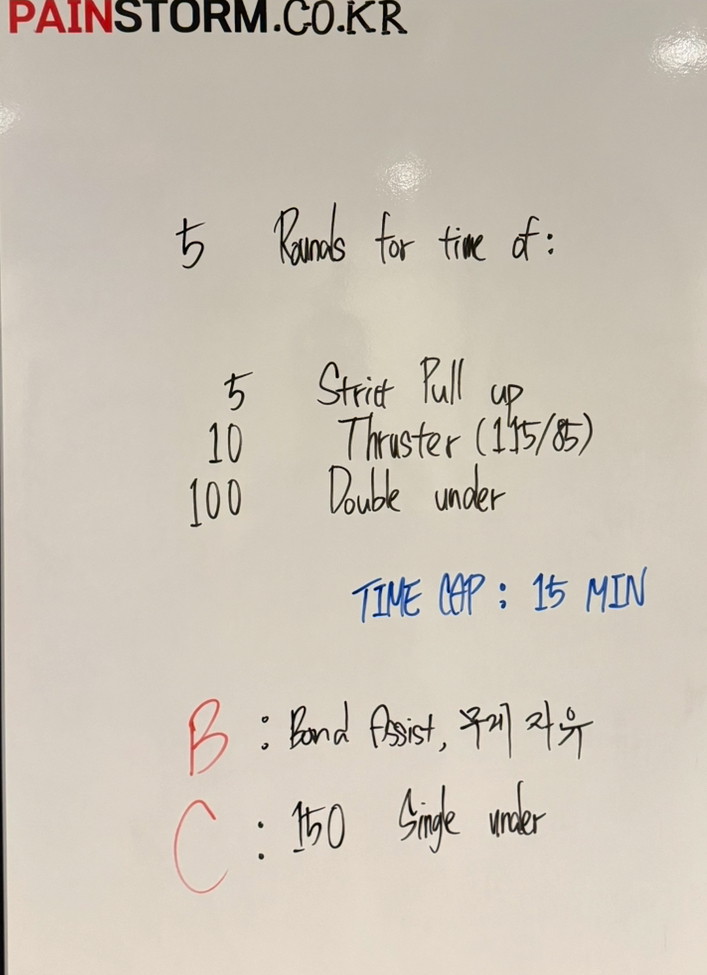 PAINSTORM.CO.KR
5 Rounds for time of:
5 Strict Pull up
10 Thruster (115/85)
100 Double under
TIME CAP : 15 MIN
B : Band Assist, 무게 자유
C : 150 Single under